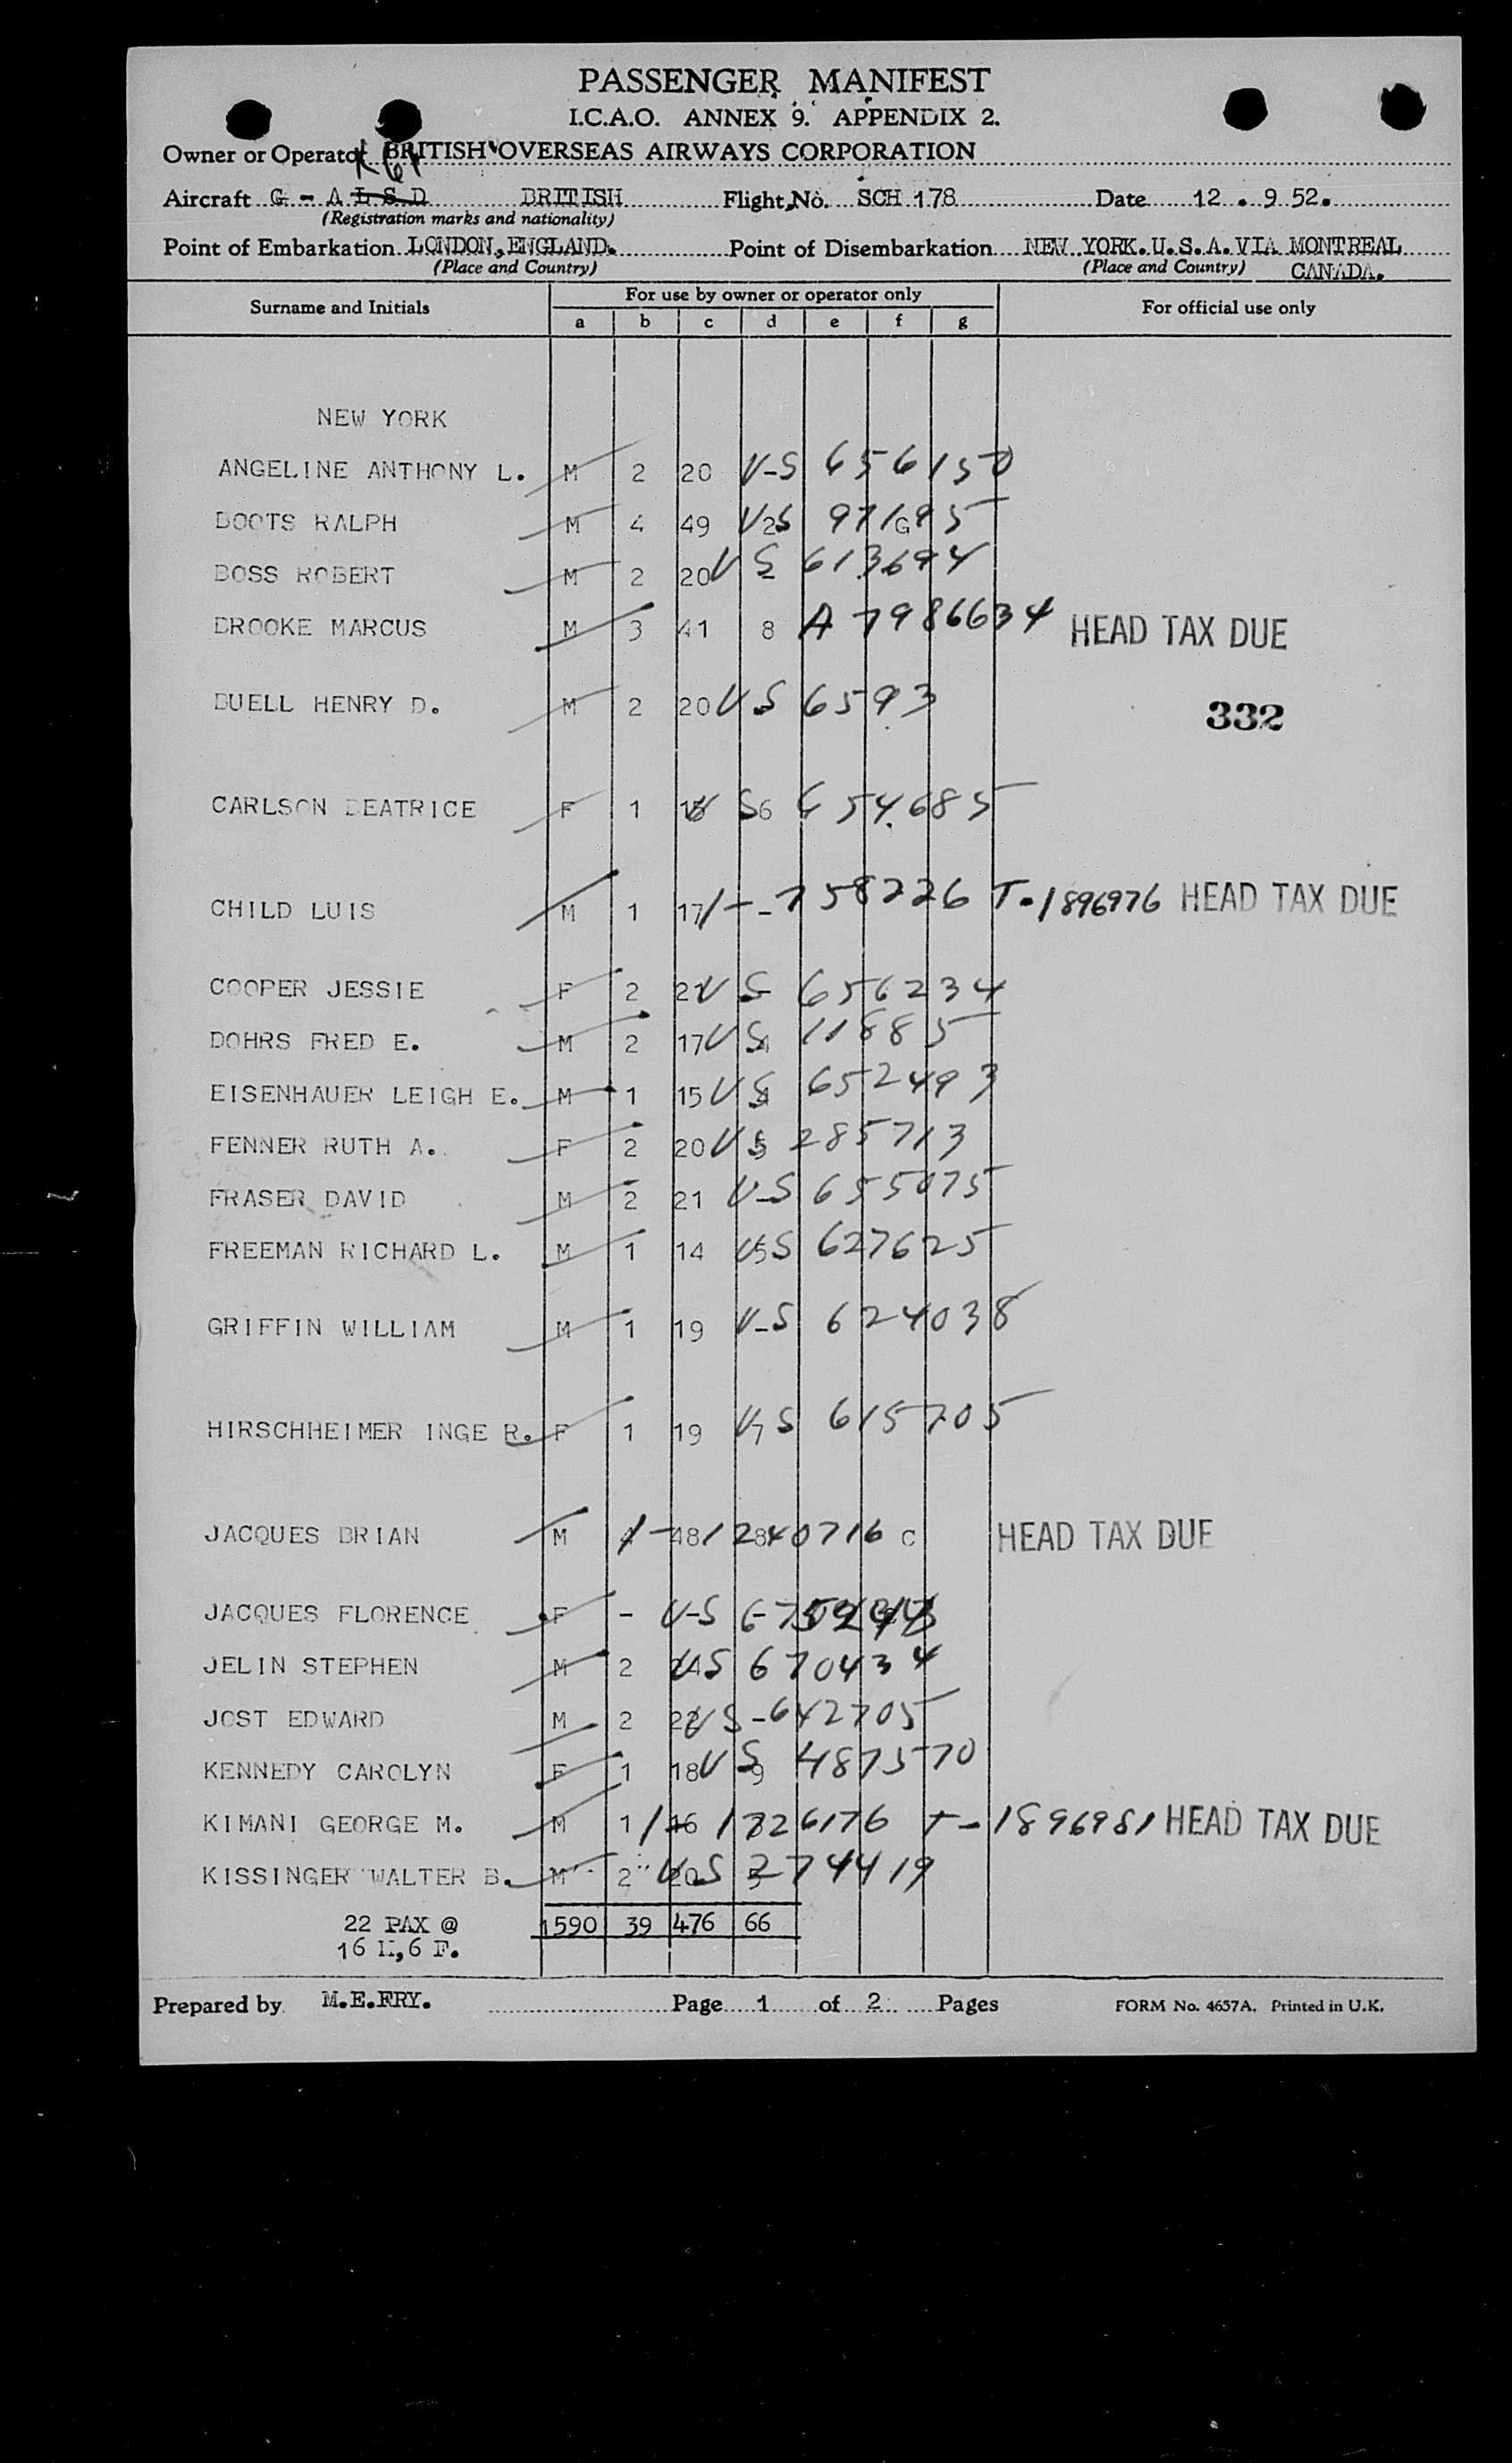 PASSENGER MANIFEST
I.C.A.O. ANNEX 9. APPENDIX 2.
Owner or Operator BRITISH OVERSEAS AIRWAYS CORPORATION
Aircraft G - A L S D BRITISH Flight No. SCH 178 Date 12 . 9 52.
(Registration marks and nationality)
Point of Embarkation LONDON, ENGLAND. Point of Disembarkation NEW YORK. U.S.A. VIA MONTREAL
(Place and Country) (Place and Country) CANADA.
Surname and Initials For use by owner or operator only For official use only
a b c d e f g
NEW YORK
ANGELINE ANTHONY L. M 2 20 US 656150
BOOTS RALPH M 4 49 2 US 971695 G
BOSS ROBERT M 2 20 - US 613694
BROOKE MARCUS M 3 41 8 A 7986634 HEAD TAX DUE
BUELL HENRY D. M 2 20 US 6593
332
CARLSON BEATRICE F 1 6 US 654685
CHILD LUIS M 1 17 - 1-758226 T-1896976 HEAD TAX DUE
COOPER JESSIE F 2 21 - US 656234
DOHRS FRED E. M 2 17 4 US 11885
EISENHAUER LEIGH E. M 1 15 US 652493
FENNER RUTH A. F 2 20 5 US 285713
FRASER DAVID M 2 21 - US 655075
FREEMAN RICHARD L. M 1 14 5 US 627625
GRIFFIN WILLIAM M 1 19 - US 624038
HIRSCHHEIMER INGE R. F 1 19 7 US 615705
JACQUES BRIAN M 4 48 8 1-1240716 C HEAD TAX DUE
JACQUES FLORENCE F - - - US
JELIN STEPHEN M 2 US 670434
JOST EDWARD M 2 22 US-642705
KENNEDY CAROLYN F 1 18 9 US 487570
KIMANI GEORGE M. M 1 16 T-1896981 HEAD TAX DUE
KISSINGER WALTER B. M 2 20 US 274419
22 PAX @ 1590 39 476 66
16 M,6 F.
Prepared by M.E.FRY. Page 1 of 2 Pages FORM No. 4657A. Printed in U.K.